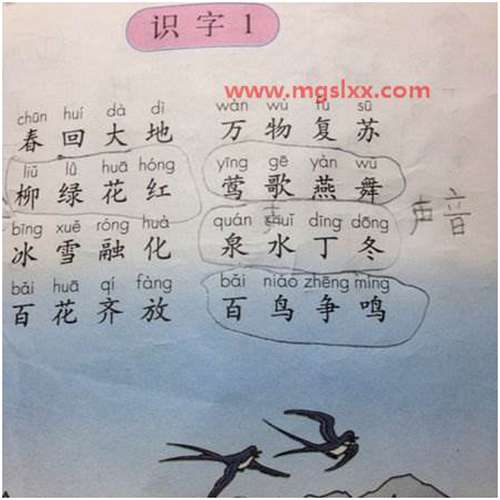 识字1
www.mgslxx.com
chūn huí dà dì wàn wù fù sū
春回大地 万物复苏
liǔ lǜ huā hóng yīng gē yàn wǔ
柳绿花红 莺歌燕舞
bīng xuě róng huà quán shuǐ dīng dōng
冰雪融化 泉水丁冬
声音
bǎi huā qí fàng bǎi niǎo zhēng míng
百花齐放 百鸟争鸣